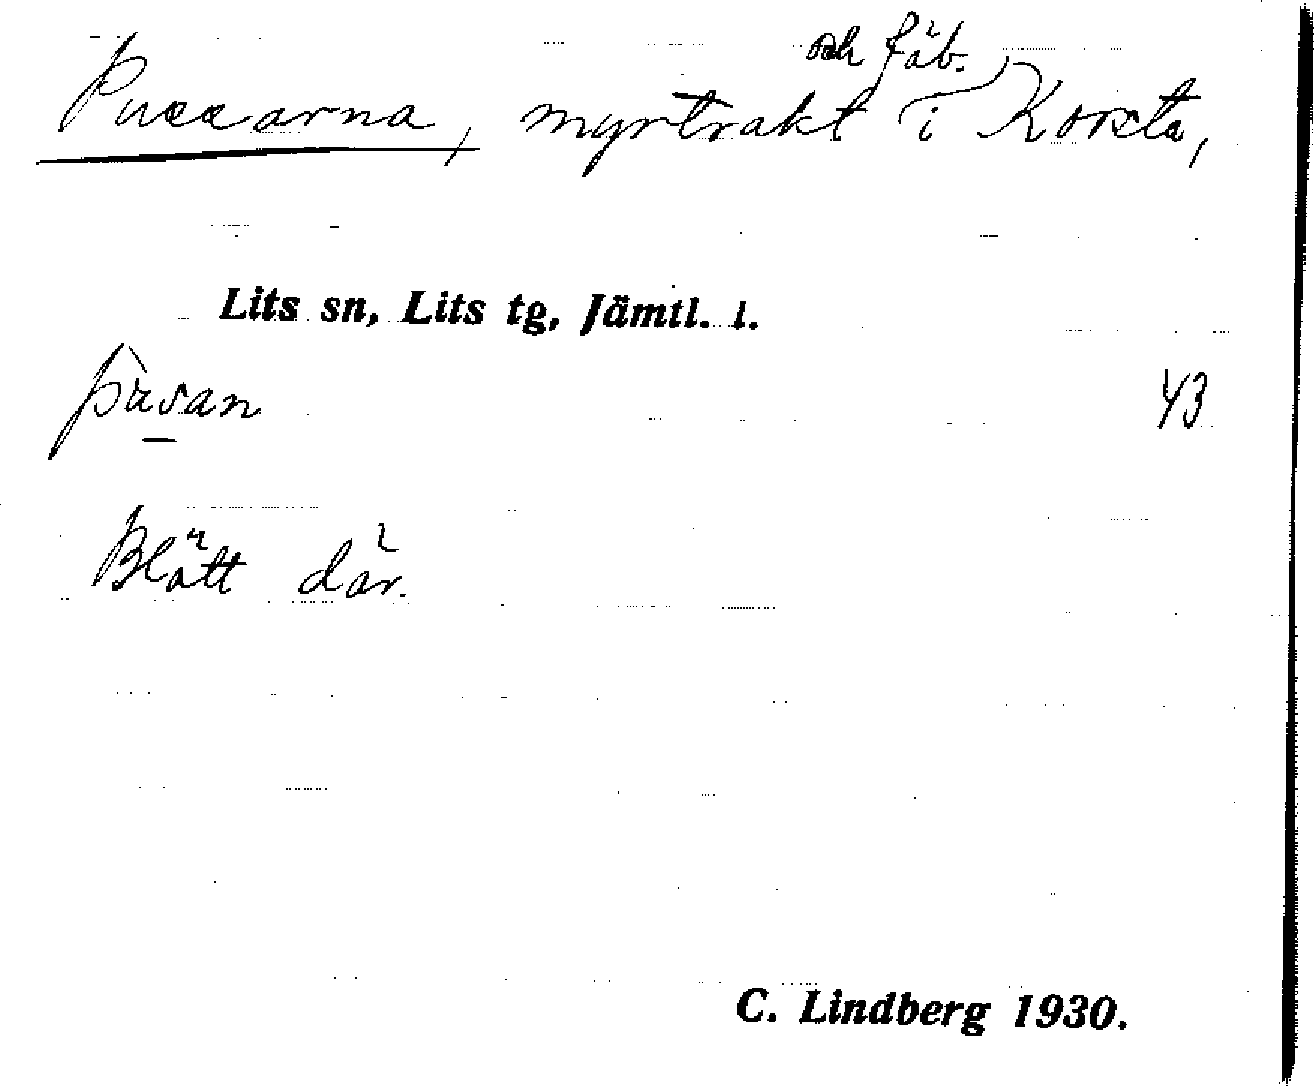 och fäb.
Pussarna, myrtrakt i Korsta,
Lits sn, Lits tg, Jämtl. l.
pùsan 43
Blött där.
C. Lindberg 1930.